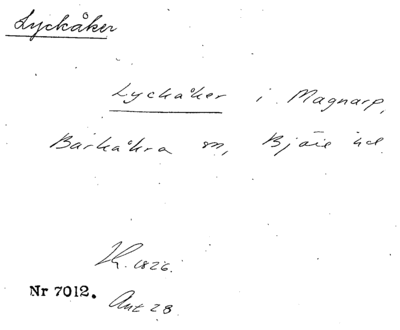 Lyckåker
Lyckåker i Magnarp,
Barkåkra sn, Bjäre hd
1826.
Nr 7012.
Ant 28